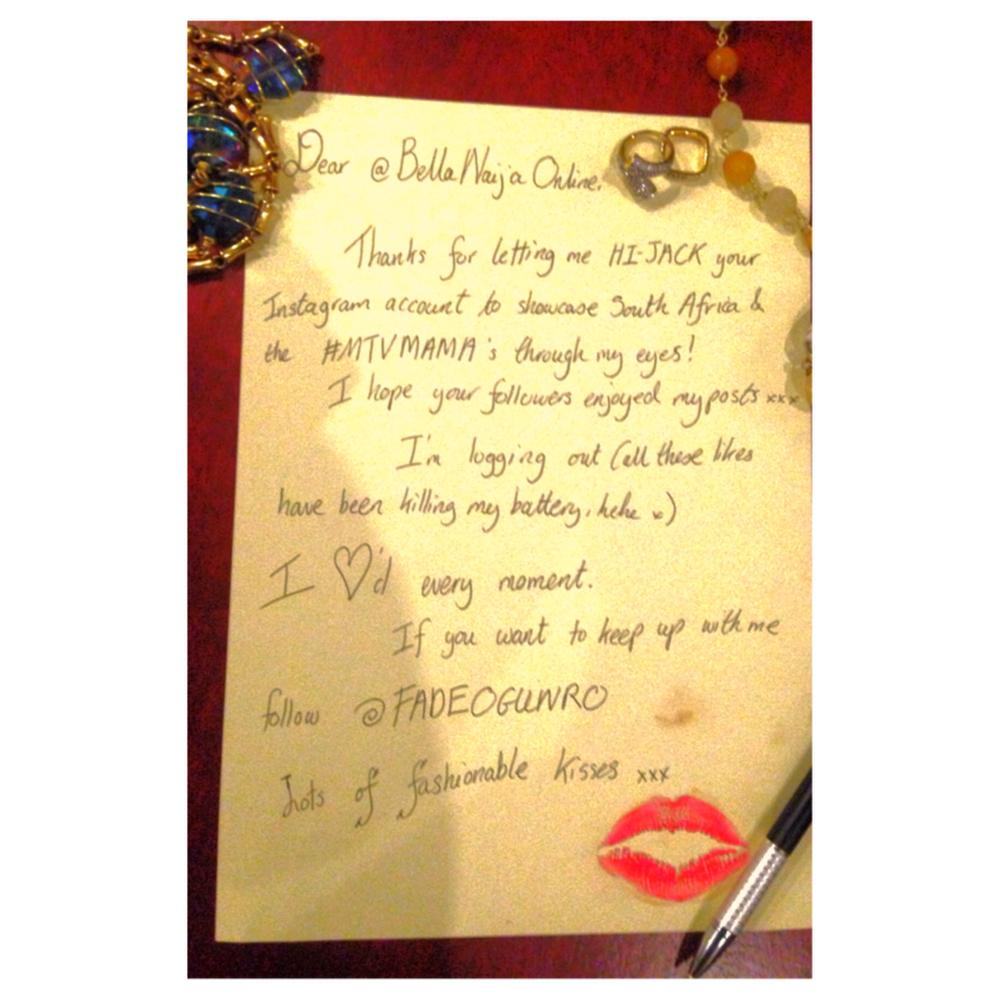 Dear @BellaNaija Online.
Thanks for letting me HI-JACK your
Instagram account to showcase South Africa &
the #MTVMAMA's through my eyes!
I hope your followers enjoyed my posts xxx
I'm logging out (all these likes
have been killing my battery, hehe x)
I ♡'d every moment.
If you want to keep up with me
follow @FADEOGUNRO
Lots of fashionable kisses xxx